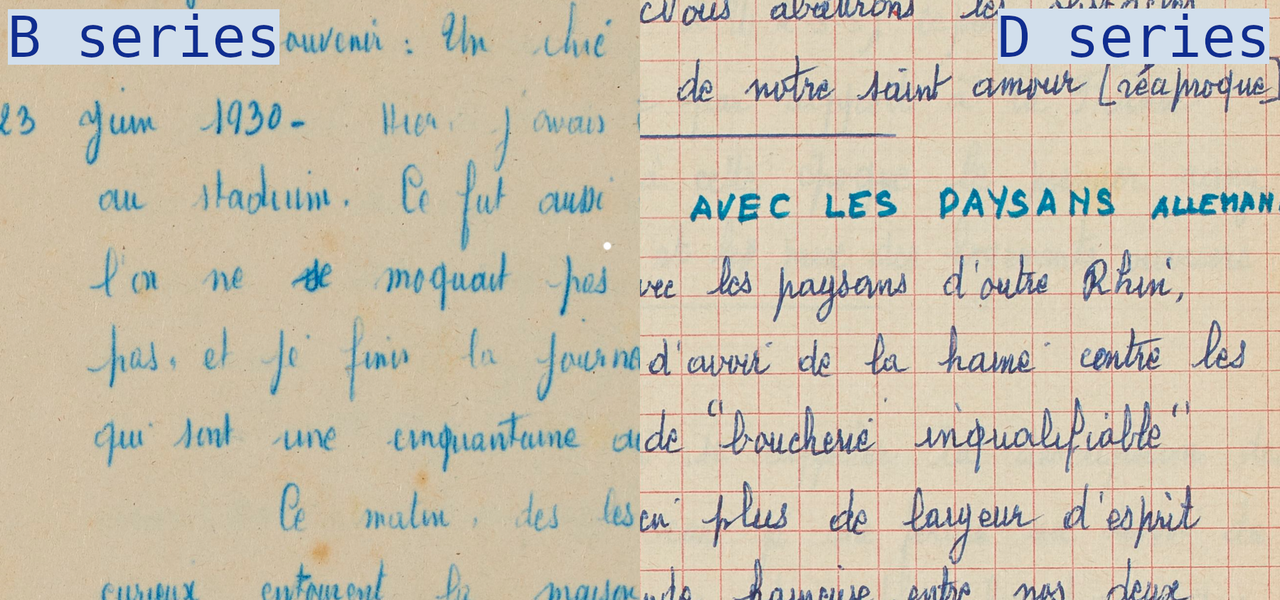 B series
ouvenir : Un chié
23 Juin 1930 - Hier, j'avais
au stadium. Ce fut aussi
l'on ne se moquait pas
pas, et je finis la journé
qui sont une cinquantaine
Ce matin, des les
curieux entourent la maison
D series
Nous abattrons les
de notre saint amour [réciproque]
AVEC LES PAYSANS ALLEMAN
vec les paysans d'outre Rhin,
d'avoir de la haine contre les
de "boucherie inqualifiable"
en plus de largeur d'esprit
haineuse entre nos deux